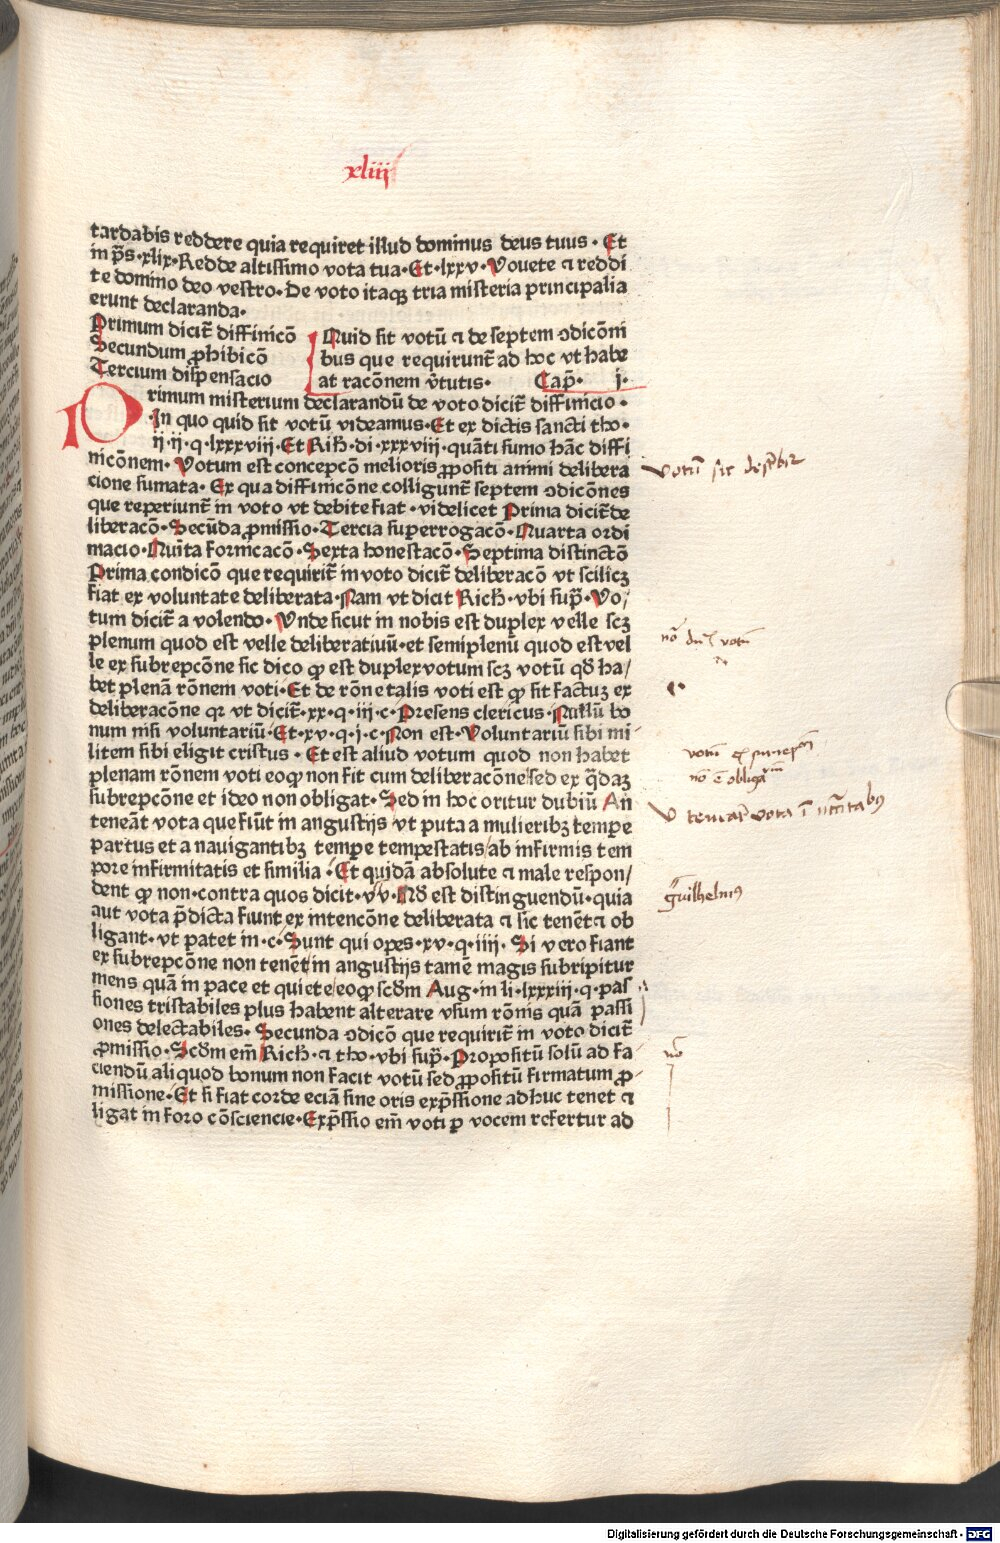 xliij
tardabis reddere quia requiret illud dominus deus tuus · Et
in p̄s · xlix · Redde altissimo vota tua · Et · lxxv · Vouete ⁊ reddi
te domino deo vestro · De voto itaqꝫ tria misteria principalia
erunt declaranda ·
Primum dicit̄ diffinicō
Secundum ꝓhibicō
Tercium dispensacio
Quid sit votū ⁊ de septem ꝯdicōni
bus que requirunt̄ ad hoc vt habe
at racōnem v̄tutis · Cap̄ · i ·
Primum misterium declarandū de voto dicit̄ diffinicio ·
In quo quid sit votū videamus · Et ex dictis sancti tho ·
ii · ii · q · lxxxviii · Et Rich̄ · di · xxxviii · quāti sumo hāc diffi
nicōnem · Votum est concepcō melioris ꝓpositi animi delibera
cione sumata · Ex qua diffinicōne colligunt̄ septem ꝯdicōnes
que reperiunt̄ in voto vt debite fiat · videlicet Prima dicit̄ de
liberacō · Secūda ꝓmissio · Tercia superrogacō · Quarta ordi
macio · Quīta formcacō · Sexta honestacō · Septima distinctō
Prima condicō que requirit̄ in voto dicit̄ deliberacō vt scilicꝫ
fiat ex voluntate deliberata · Nam vt dicit Rich̄ · vbi sup̄ · Vo/
tum dicit̄ a volendo · Vnde sicut in nobis est duplex velle scꝫ
plenum quod est velle deliberatiuū · et semiplenū quod est vel
le ex subrepcōne sic dico ꝙ est duplex votum scꝫ votū qd̄ ha/
bet plenā rōnem voti · Et de rōne talis voti est ꝙ sit factuꝫ ex
deliberacōne qr vt dicit̄ · xx · q · iij · c · Presens clericus · Nullū bo
num nisi voluntariū · Et · xv · q · i · c · Non est · Voluntariū sibi mi
litem sibi eligit cristus · Et est aliud votum quod non habet
plenam rōnem voti eoꝙ non fit cum deliberacōne sed ex q̄daꝫ
subrepcōne et ideo non obligat · Sed in hoc oritur dubiū An
teneāt vota que fiūt in angustijs vt puta a mulieribꝫ tempe
partus et a nauigantibꝫ tempe tempestatis/ab infirmis tem
pore infirmitatis et similia · Et quidā absolute ⁊ male respon/
dent ꝙ non · contra quos dicit · vv · Nd̄ est distinguendū · quia
aut vota p̄dicta fiunt ex intencōne deliberata ⁊ sic tenēt ⁊ ob
ligant · vt patet in · c · Sunt qui opes · xv · q · iiij · Si vero fiant
ex subrepcōne non tenēt/in angustijs tamē magis subripitur
mens quā in pace et quiete/eoꝙ scd̄m Aug · in li · lxxxiij · q · pas
siones tristabiles plus habent alterare vsum rōnis quā passi
ones delectabiles · Secunda ꝯdicō que requirit̄ in voto dicit̄
ꝓmissio · Scd̄m em̄ Rich̄ · ⁊ tho · vbi sup̄ · Propositū solū ad fa
ciendū aliquod bonum non facit votū sed ꝓpositū firmatum ꝓ
missione · Et si fiat corde eciā sine oris exp̄ssione adhuc tenet ⁊
ligat in foro cōsciencie · Exp̄ssio em̄ voti p vocem refertur ad
votū sic
nō
votū
nō ē obligat
vota ī
guilhelmus
nō
Digitalisierung gefördert durch die Deutsche Forschungsgemeinschaft - DFG